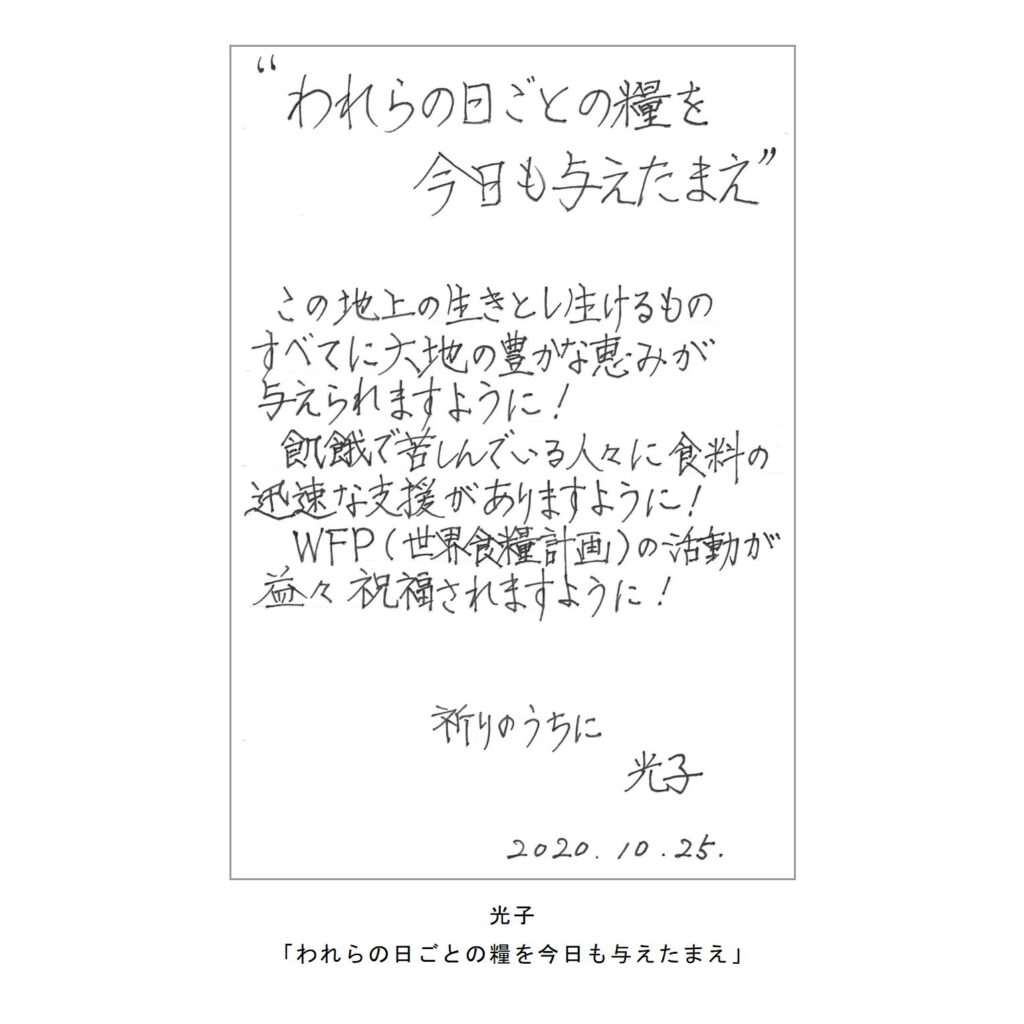 “われらの日ごとの糧を
今日も与えたまえ”
この地上の生きとし生けるもの
すべてに大地の豊かな恵みが
与えられますように！
飢餓で苦しんでいる人々に食料の
迅速な支援がありますように！
WFP（世界食糧計画）の活動が
益々祝福されますように！
祈りのうちに
光子
2020.10.25.
光子
「われらの日ごとの糧を今日も与えたまえ」